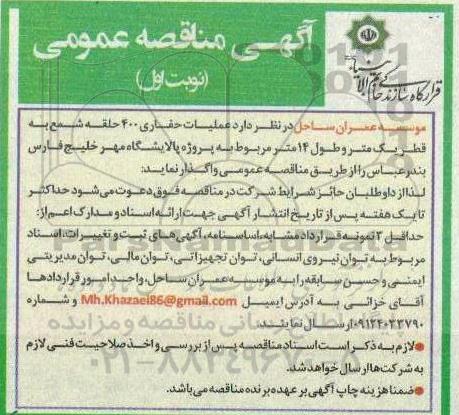 آگهی مناقصه عمومی
(نوبت اول)
قرارگاه سازندگی خاتم الانبیاء
موسسه عمران ساحل در نظر دارد عملیات حفاری ۴۰۰ حلقه شمع به
قطر یک متر و طول ۱۴ متر مربوط به پروژه پالایشگاه مهر خلیج فارس
بندرعباس را از طریق مناقصه عمومی واگذار نماید:
لذا از داوطلبان حائز شرایط شرکت در مناقصه فوق دعوت می شود حداکثر
تا یک هفته پس از تاریخ انتشار آگهی جهت ارائه اسناد و مدارک اعم از:
حداقل ۳ نمونه قرارداد مشابه، اساسنامه، آگهی های ثبت و تغییرات، اسناد
مربوط به توان نیروی انسانی، توان تجهیزاتی، توان مالی، توان مدیریتی
ایمنی و حسن سابقه را به موسسه عمران ساحل، واحد امور قراردادها
آقای خزائی به آدرس ایمیل Mh.Khazaei86@gmail.com و شماره
۰۹۱۲۴۰۲۳۷۹۰ ارسال نمایند.
●لازم به ذکر است اسناد مناقصه پس از بررسی و اخذ صلاحیت فنی لازم
به شرکت ها ارسال خواهد شد.
●ضمنا هزینه چاپ آگهی بر عهده برنده مناقصه می باشد.